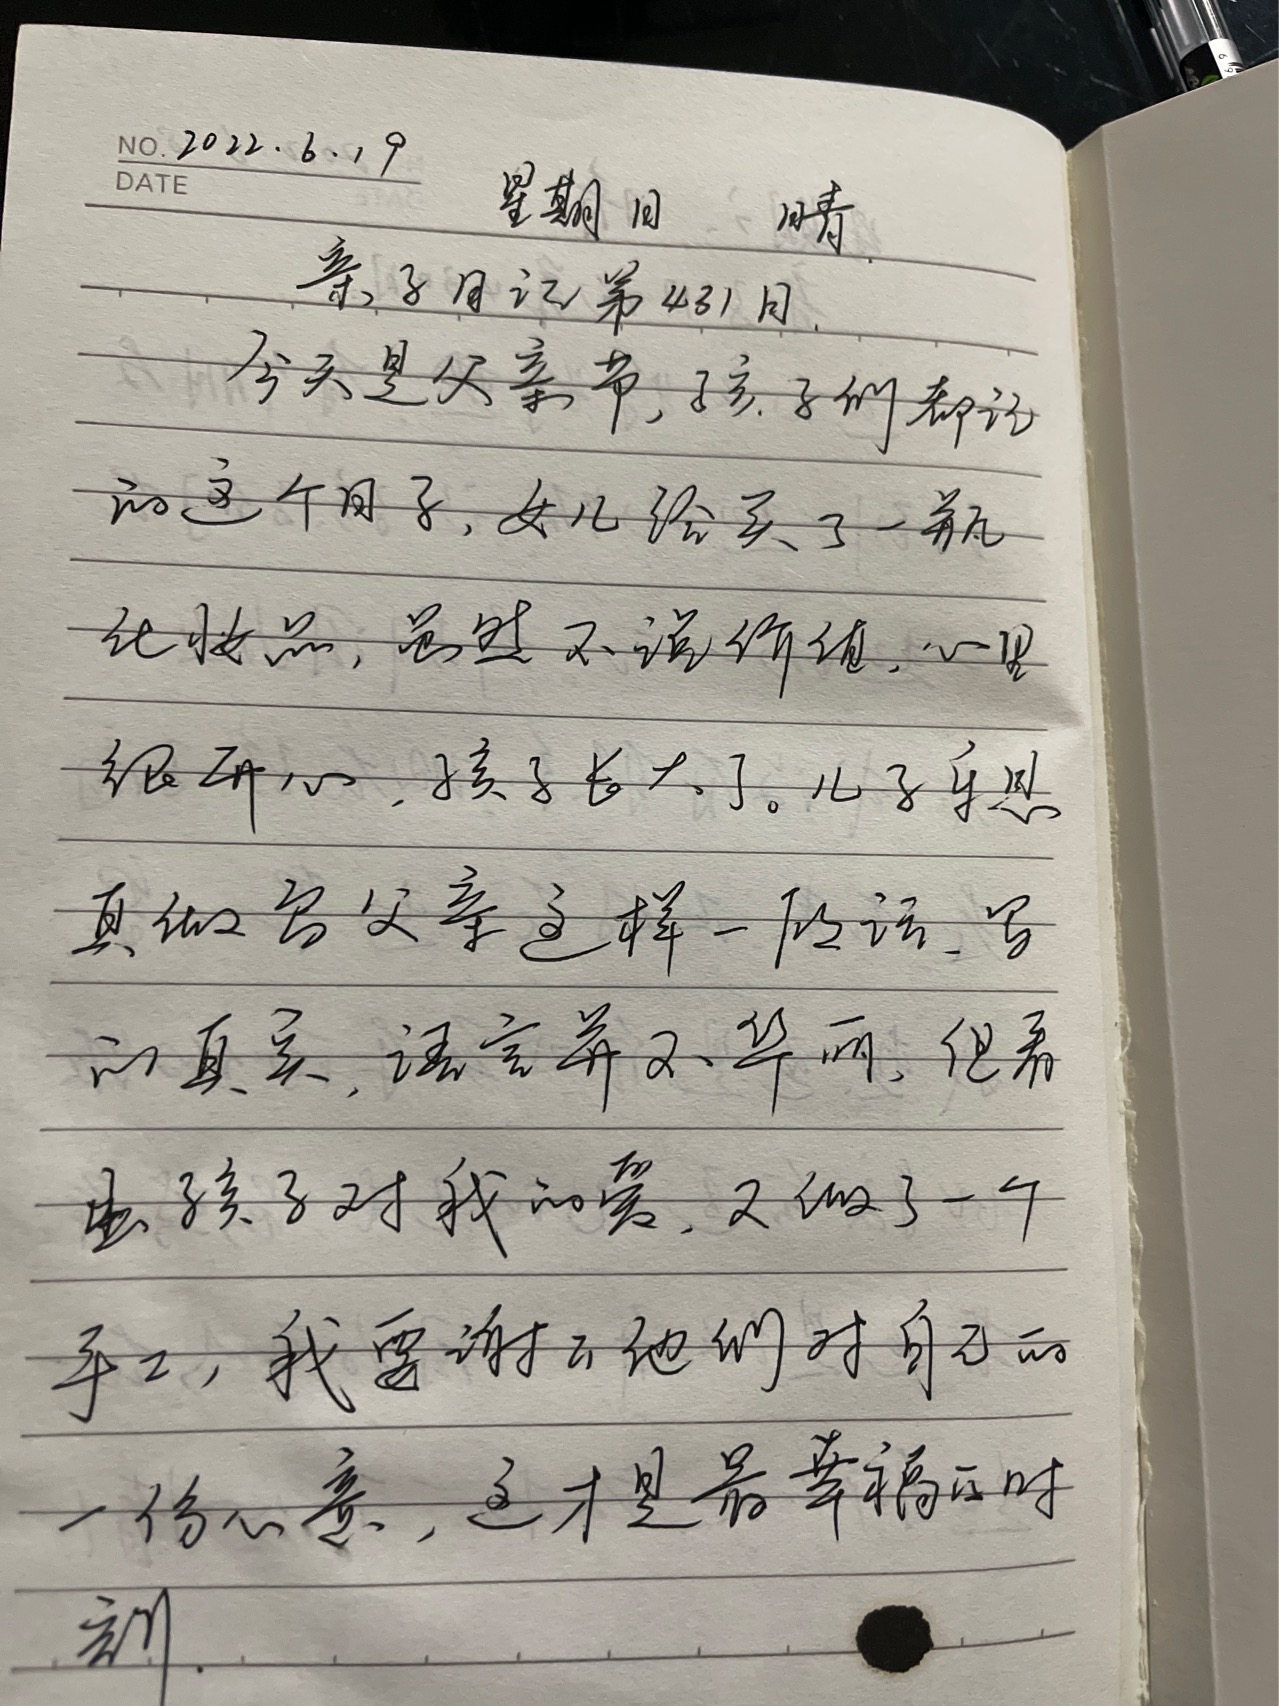 NO. 2022.6.19
DATE
星期日 晴
亲子日记第431日.
今天是父亲节,孩子们都记
的这个日子,女儿给买了一瓶
化妆品,虽然不说价值,心里
很开心,孩子长大了。儿子
真做写父亲这样一段话,写
的真实,语言并不华丽,但看
出孩子对我的爱,又做了一个
手工,我要谢谢他们对自己的
一份心意,这才是最幸福的时
刻.